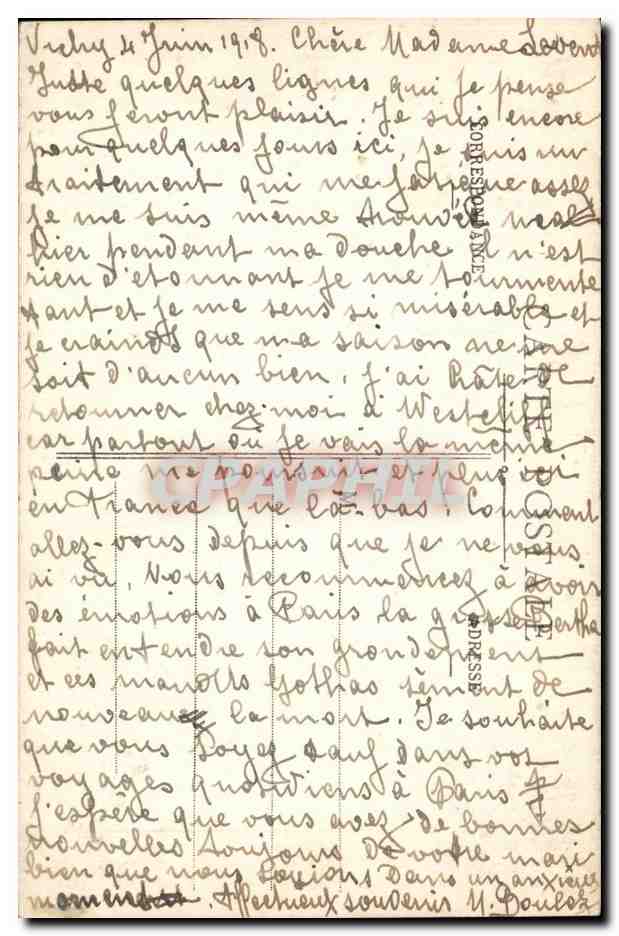 Vichy 4 Juin 1918. Chère Madame
Juste quelques lignes qui je pense
vous feront plaisir. Je suis encore
pour quelques jours ici, je suis un
traitement qui me fatigue assez
je me suis même trouvée mal
hier pendant ma douche il n'est
rien d'étonnant je me tourmente
tant et je me sens si misérable et
je crainds que ma saison ne me
soit d'aucun bien. J'ai hâte de
retourner chez moi à
car partout où je vais la même
peine me poursuit et plus ici
en France que là-bas. Comment
allez-vous depuis que je ne vous
ai vu. Vous recommencez à avoir
des émotions à Paris la grosse Bertha
fait entendre son grondement
et ces maudits Gothas sèment de
nouveau la mort. Je souhaite
que vous soyez sauf dans vos
voyages quotidiens à Paris et
j'espère que vous avez de bonnes
nouvelles toujours de votre mari
bien que nous soyions dans un anxieux
moment. Affectueux souvenir M. Boulez
CORRESPONDANCE
CARTE POSTALE
ADRESSE
M
CPAPHIL